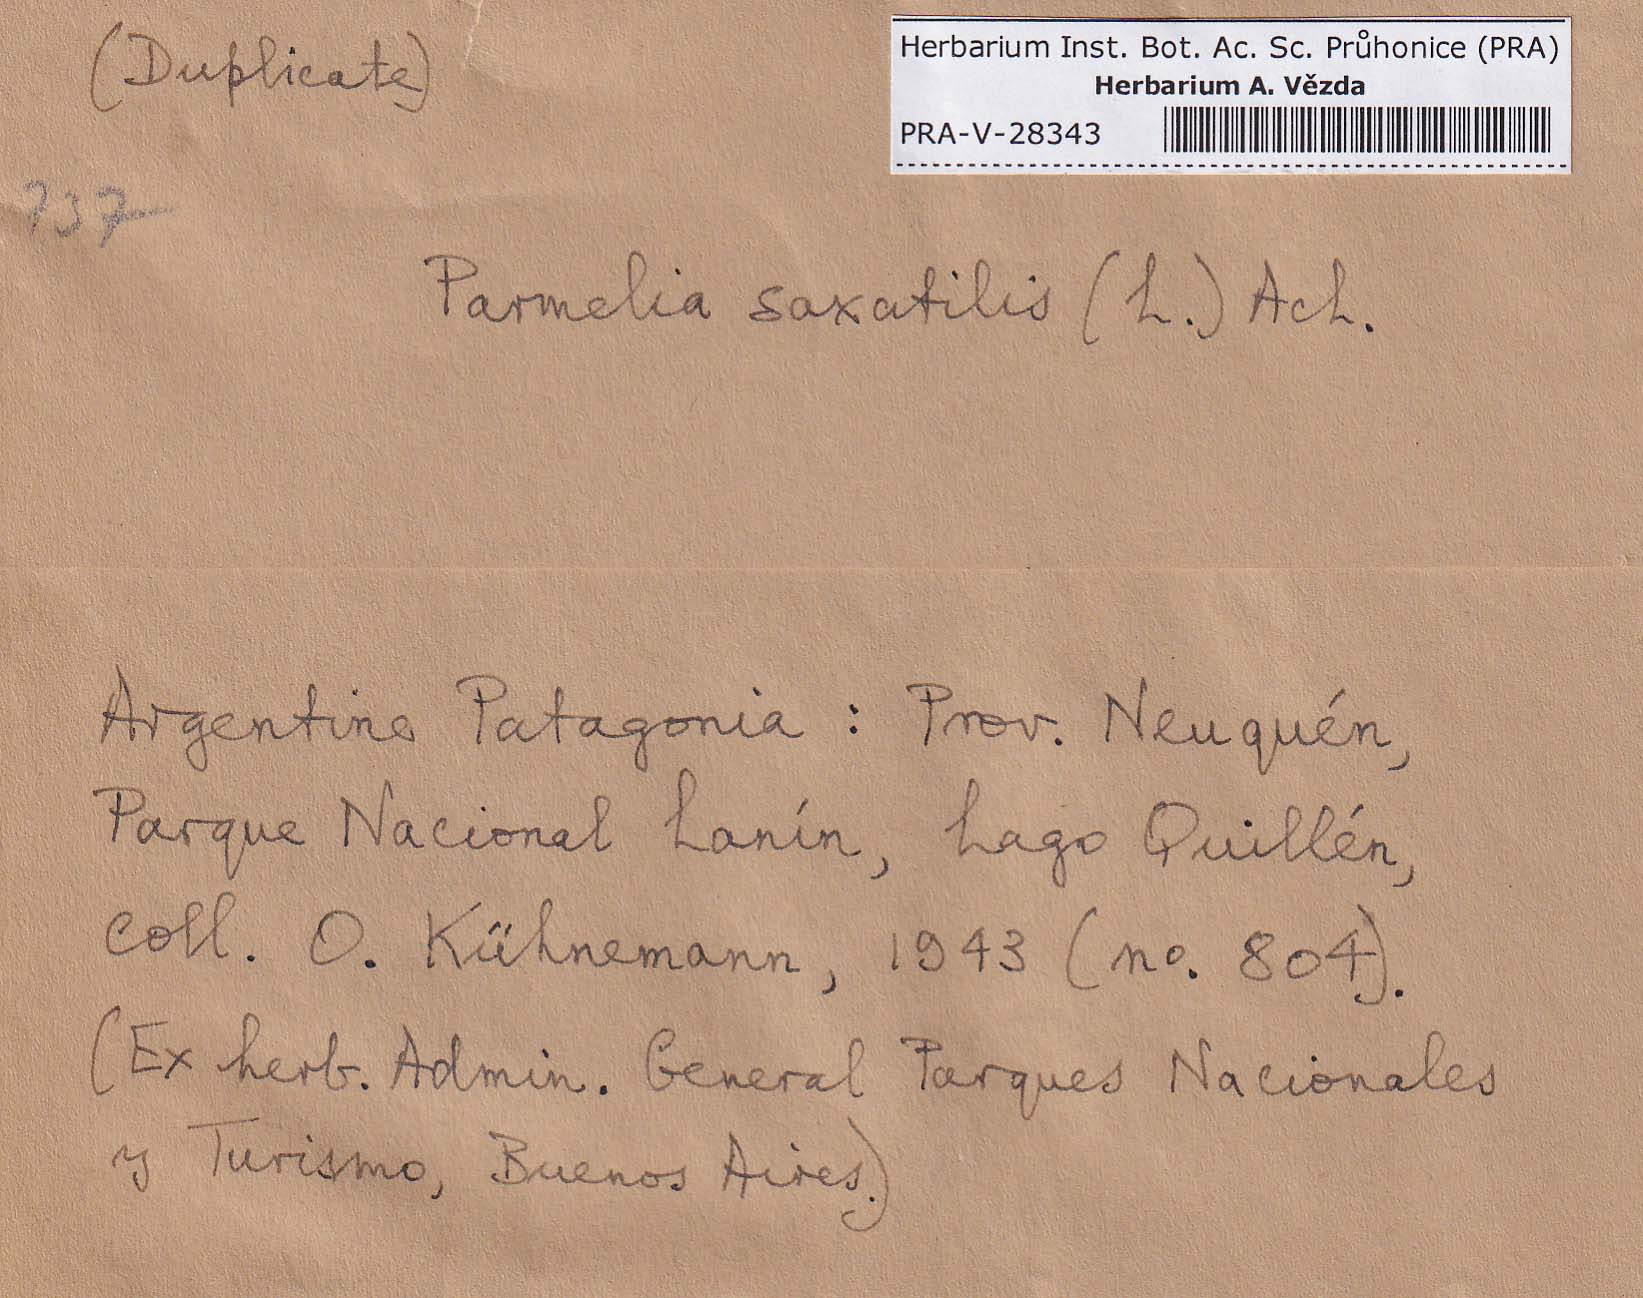 (Duplicate)
Herbarium Inst. Bot. Ac. Sc. Průhonice (PRA)
Herbarium A. Vězda
PRA-V-28343
737
Parmelia saxatilis (L.) Ach.
Argentine Patagonia : Prov. Neuquén,
Parque Nacional Lanín, Lago Quillén,
coll. O. Kühnemann, 1943 (no. 804).
(Ex herb. Admin. General Parques Nacionales
y Turismo, Buenos Aires.)